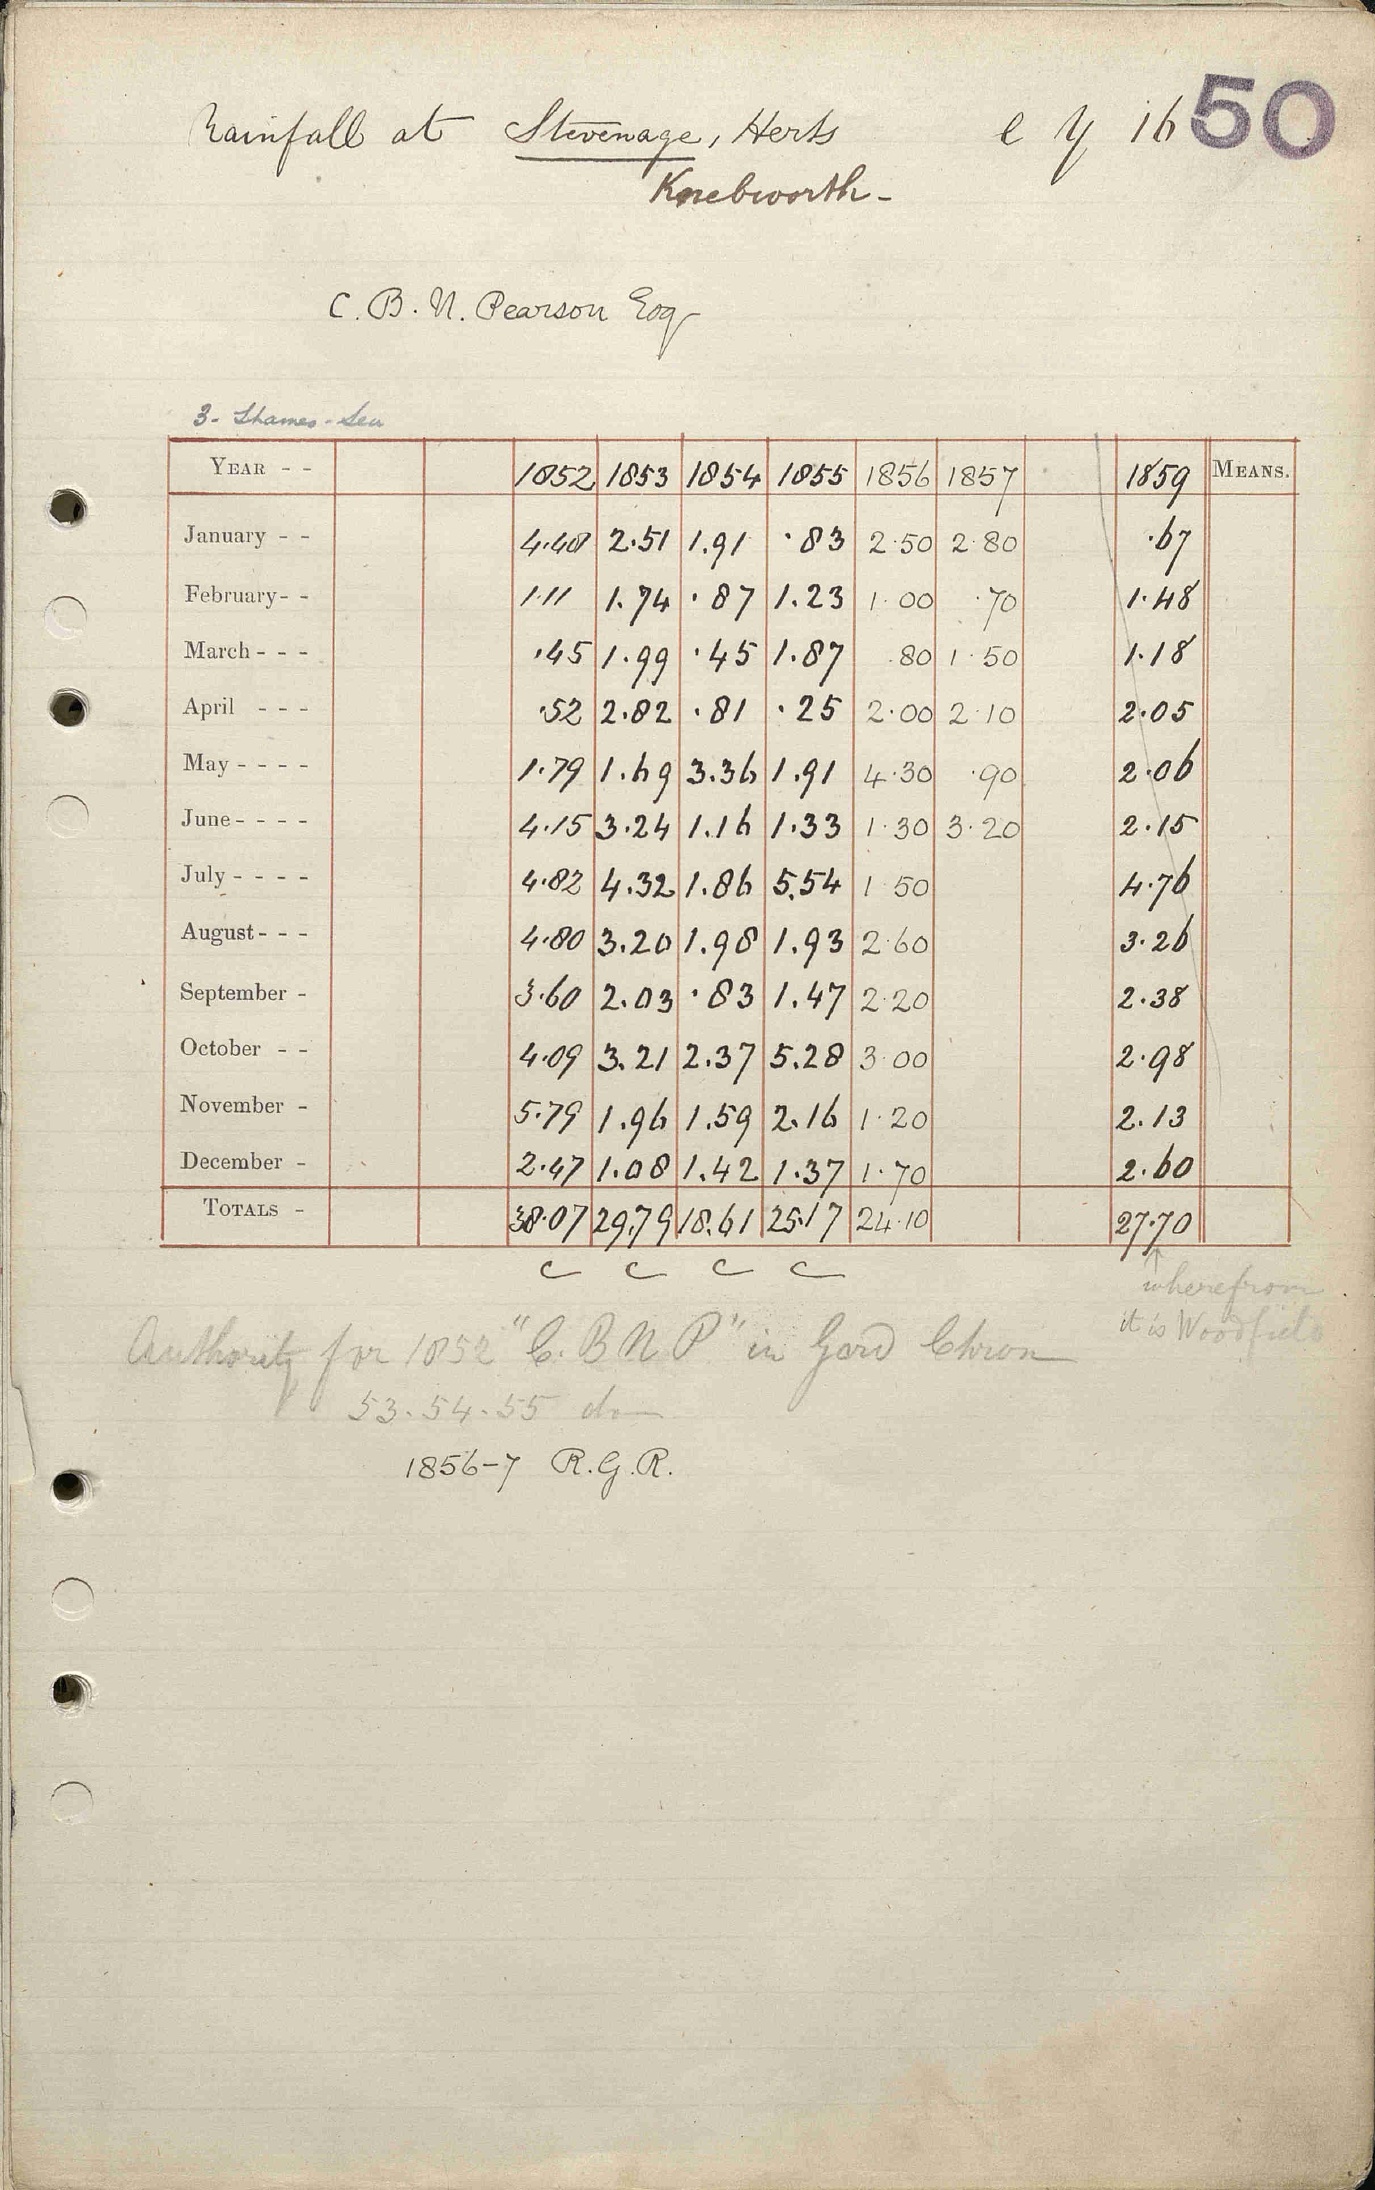 Rainfall at Stevenage, Herts e y 16 50
Knebworth-
C. B. N. Pearson Esq
3- Thames-Lea
YEAR - - 1852 1853 1854 1855 1856 1857 1859 MEANS.
January - - 4.48 2.51 1.91 .83 2.50 2.80 .67
February- - 1.11 1.74 .87 1.23 1.00 .70 1.48
March - - - .45 1.99 .45 1.87 .80 1.50 1.18
April - - - .52 2.82 .81 .25 2.00 2.10 2.05
May - - - - 1.79 1.69 3.36 1.91 4.30 .90 2.06
June - - - - 4.15 3.24 1.16 1.33 1.30 3.20 2.15
July - - - - 4.82 4.32 1.86 5.54 1.50 4.76
August - - - 4.80 3.20 1.98 1.93 2.60 3.26
September - 3.60 2.03 .83 1.47 2.20 2.38
October - - 4.09 3.21 2.37 5.28 3.00 2.98
November - 5.79 1.96 1.59 2.16 1.20 2.13
December - 2.47 1.08 1.42 1.37 1.70 2.60
TOTALS - 38.07 29.79 18.61 25.17 24.10 27.70
c c c c
wherefrom
it is Woodfield
Authority for 1852 "C. B N P" in Gard Chron
53.54.55 do
1856-7 R.G.R.